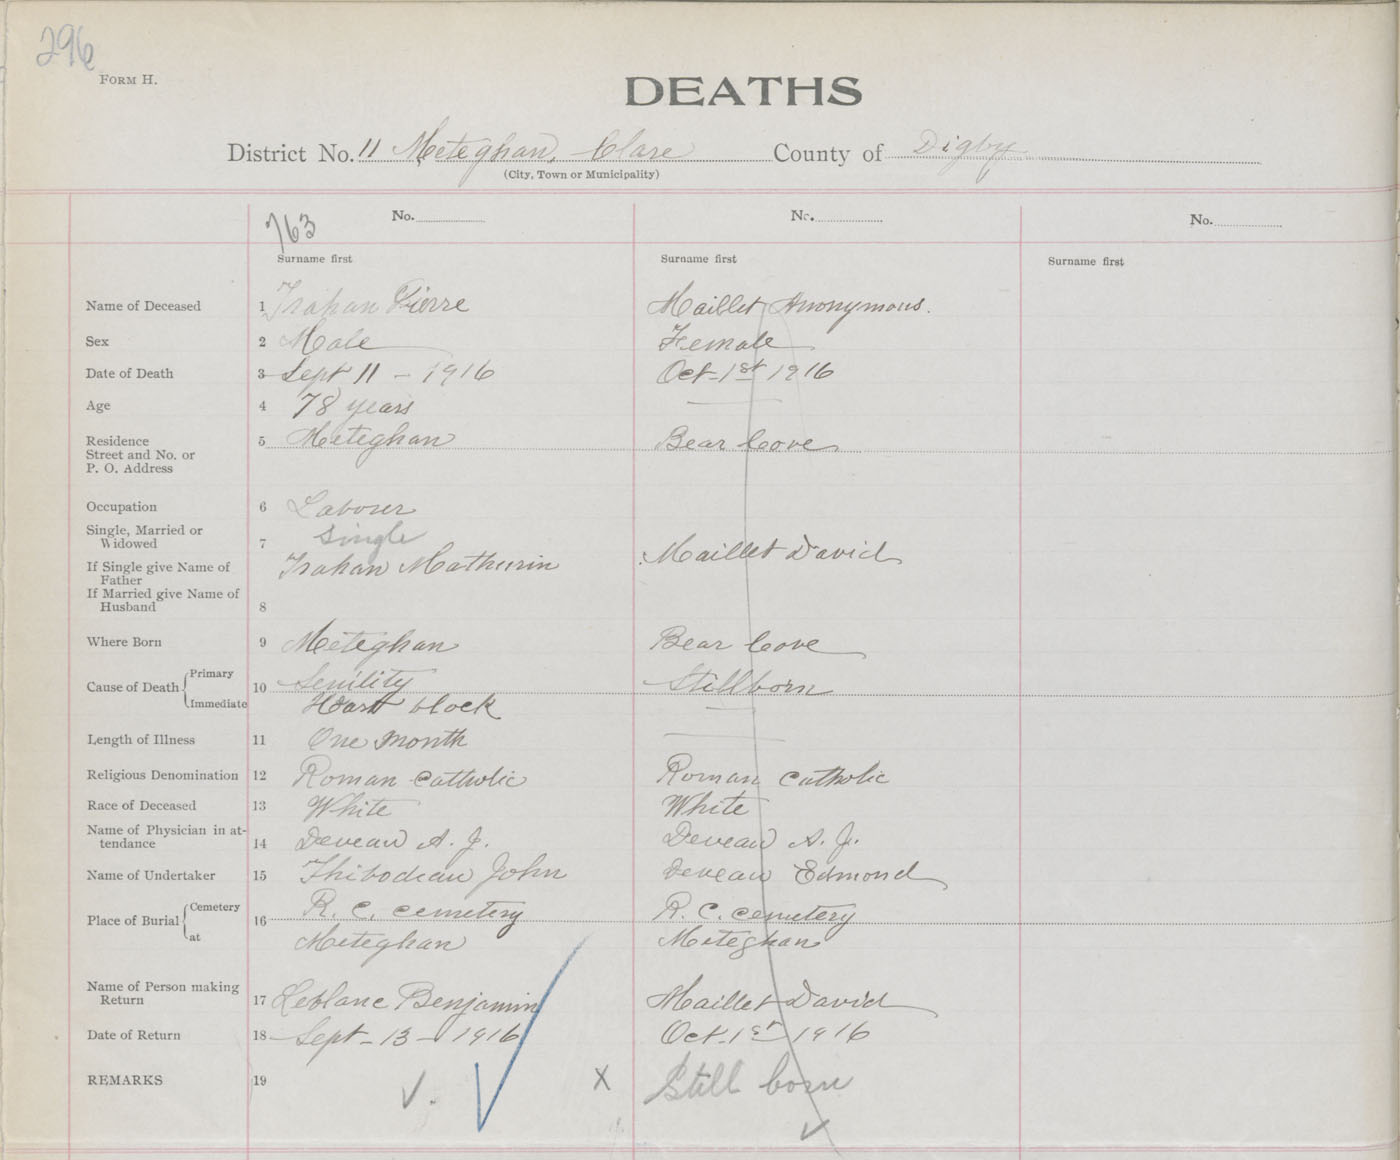 296
FORM H.
DEATHS
District No. 11 Meteghan, Clare County of Digby
(City, Town or Municipality)
763 No. No. No.
Surname first Surname first Surname first
Name of Deceased 1 Trahan Pierre Maillet Anonymous.
Sex 2 Male Female
Date of Death 3 Sept 11 - 1916 Oct. 1st 1916
Age 4 78 years
Residence 5 Meteghan Bear Cove
Street and No. or
P. O. Address
Occupation 6 Laborer
Single, Married or
Widowed 7 Single
If Single give Name of Trahan Mathurin Maillet David
Father
If Married give Name of
Husband 8
Where Born 9 Meteghan Bear Cove
Cause of Death Primary 10 Senility Stillborn
Immediate Heart block
Length of Illness 11 One month
Religious Denomination 12 Roman Catholic Roman Catholic
Race of Deceased 13 White White
Name of Physician in at-
tendance 14 Deveau A. J. Deveau A. J.
Name of Undertaker 15 Thibodeau John Deveau Edmond
Place of Burial Cemetery 16 R. C. Cemetery R. C. Cemetery
at Meteghan Meteghan
Name of Person making
Return 17 Leblanc Benjamin Maillet David
Date of Return 18 Sept - 13 - 1916 Oct. 1st 1916
REMARKS 19 X Still born